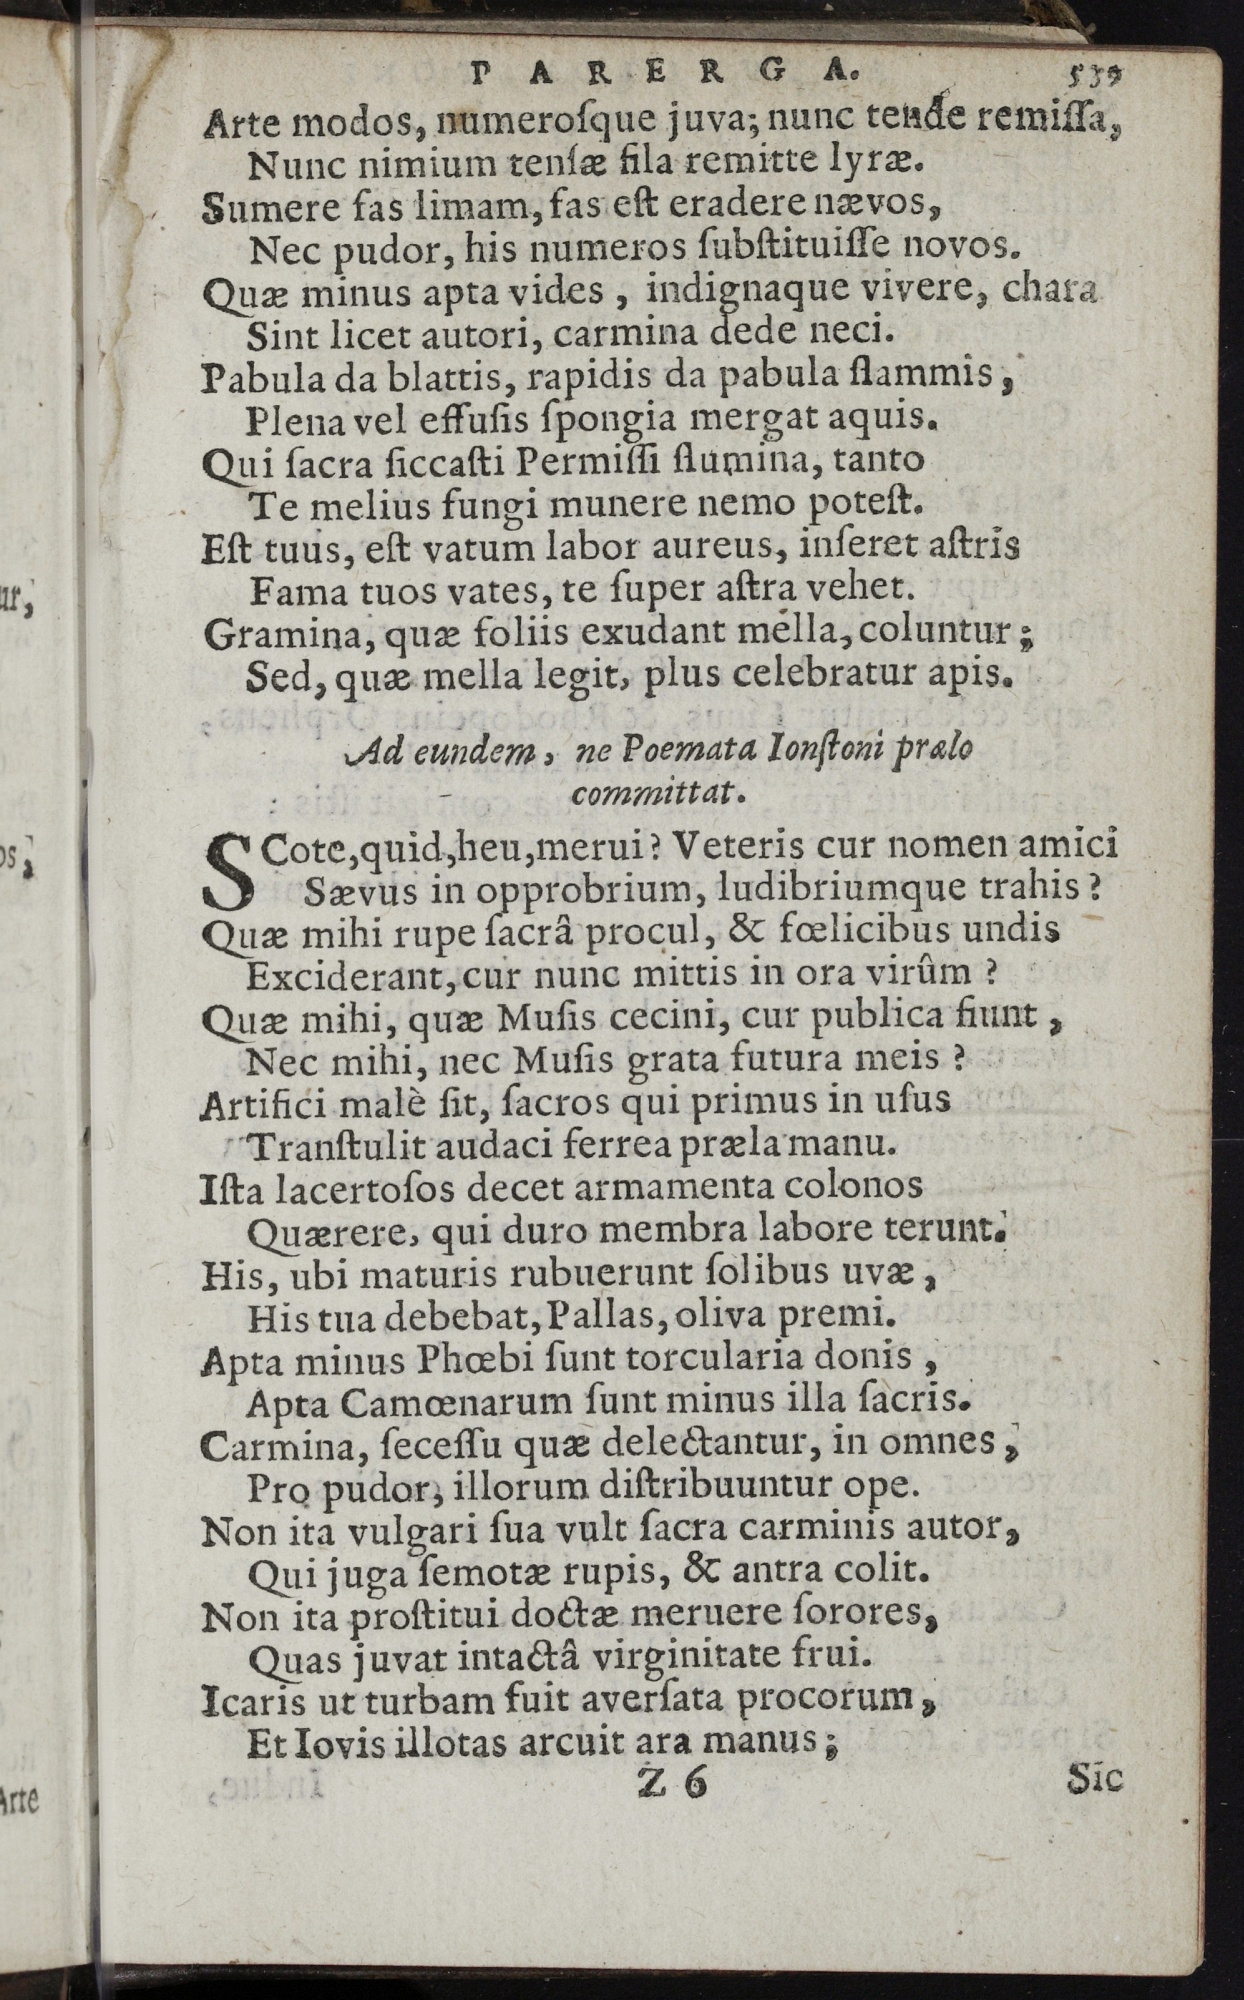 PARERGA. 539
Arte modos, numeroſque juva; nunc tende remiſſa,
Nunc nimium tenſæ fila remitte lyræ.
Sumere fas limam, fas eſt eradere nævos,
Nec pudor, his numeros ſubſtituiſſe novos.
Quæ minus apta vides, indignaque vivere, chara
Sint licet autori, carmina dede neci.
Pabula da blattis, rapidis da pabula flammis,
Plena vel effuſis ſpongia mergat aquis.
Qui ſacra ſiccaſti Permiſſi flumina, tanto
Te melius fungi munere nemo poteſt.
Eſt tuus, eſt vatum labor aureus, inſeret aſtris
Fama tuos vates, te ſuper aſtra vehet.
Gramina, quæ foliis exudant mella, coluntur;
Sed, quæ mella legit, plus celebratur apis.
Ad eundem, ne Poemata Ionſtoni prælo
committat.
SCote, quid, heu, merui? Veteris cur nomen amici
Sævus in opprobrium, ludibriumque trahis?
Quæ mihi rupe ſacrâ procul, & fœlicibus undis
Exciderant, cur nunc mittis in ora virûm?
Quæ mihi, quæ Muſis cecini, cur publica fiunt,
Nec mihi, nec Muſis grata futura meis?
Artifici malè ſit, ſacros qui primus in uſus
Tranſtulit audaci ferrea præla manu.
Iſta lacertoſos decet armamenta colonos
Quærere, qui duro membra labore terunt.
His, ubi maturis rubuerunt ſolibus uvæ,
His tua debebat, Pallas, oliva premi.
Apta minus Phœbi ſunt torcularia donis,
Apta Camœnarum ſunt minus illa ſacris.
Carmina, ſeceſſu quæ delectantur, in omnes,
Pro pudor, illorum diſtribuuntur ope.
Non ita vulgari ſua vult ſacra carminis autor,
Qui juga ſemotæ rupis, & antra colit.
Non ita proſtitui doctæ meruere ſorores,
Quas juvat intactâ virginitate frui.
Icaris ut turbam fuit averſata procorum,
Et Iovis illotas arcuit ara manus;
Z 6 Sic